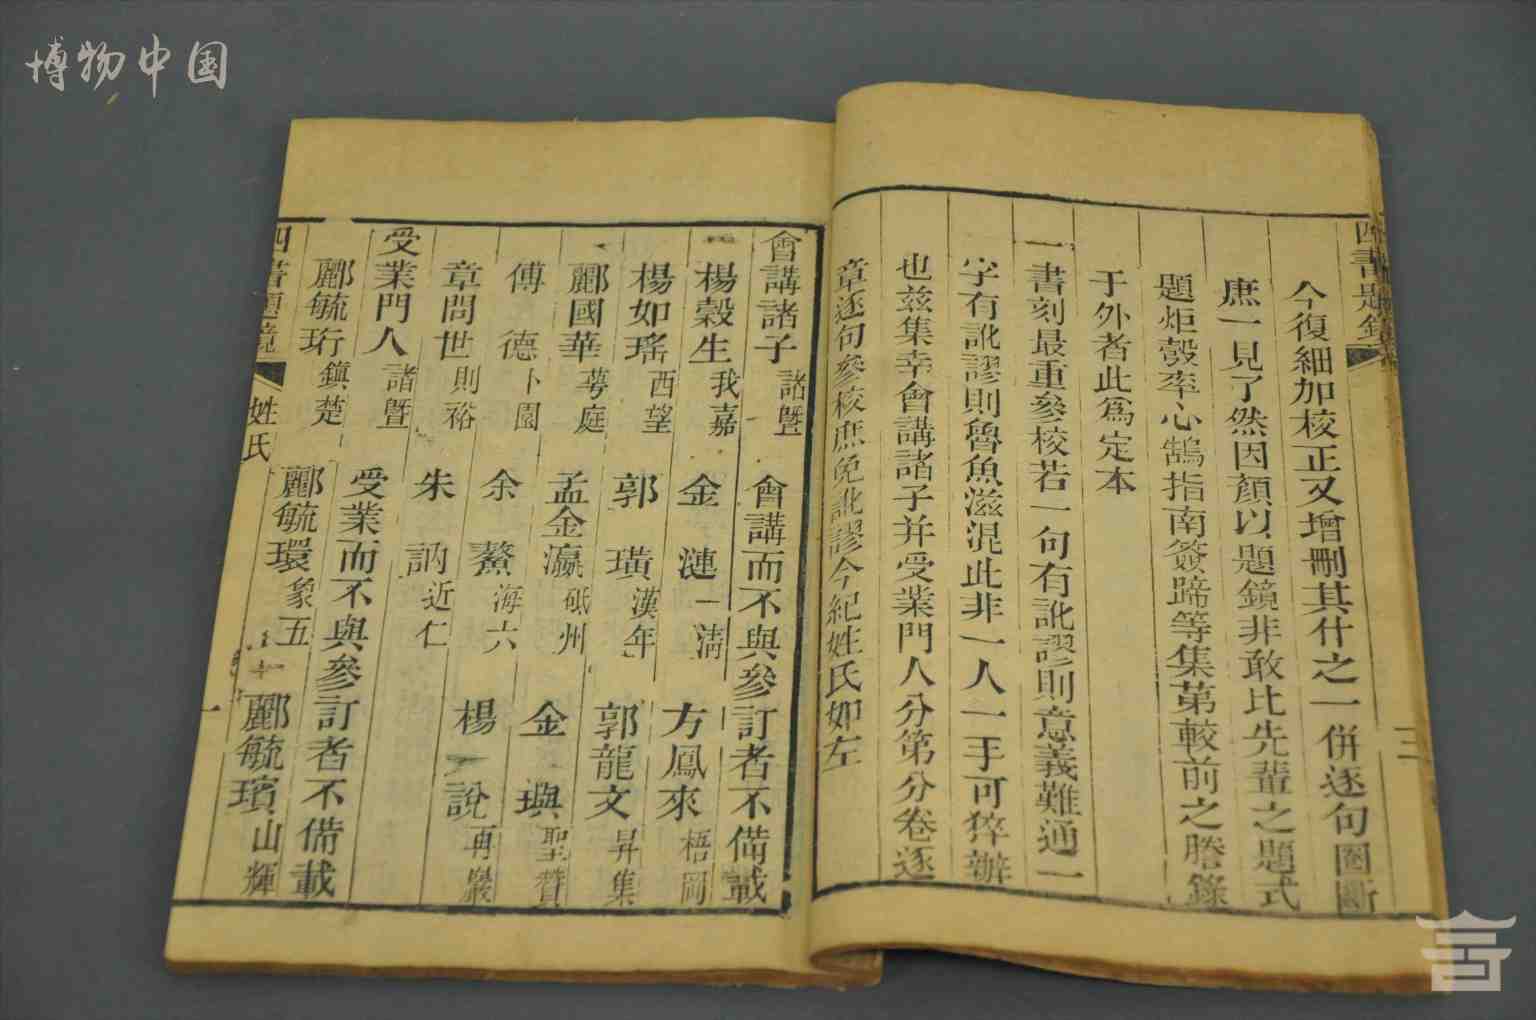 博物中国
四書題鏡
三
今復細加校正又增刪其什之一併逐句圈斷
庶一見了然因顏以題鏡非敢比先輩之題式
題炬彀率心鵠指南簽蹄等集第較前之謄錄
于外者此爲定本
一書刻最重參校若一句有訛謬則意義難通一
字有訛謬則魯魚滋混此非一人一手可猝辦
也茲集幸會講諸子并受業門人分第分卷逐
章逐句參校庶免訛謬今紀姓氏如左
會講諸子 諸曁 會講而不與參訂者不備載
楊穀生 我嘉 金漣 一淸 方鳳來 梧岡
楊如瑤 西望 郭璜 漢年 郭龍文 昇集
酈國華 萼庭 孟金瀛 砥州 金璵 聖贊
傅德 卜園 余鰲 海六 楊說 再巖
章問世 則裕 朱訥 近仁
受業門人 諸曁 受業而不與參訂者不備載
酈毓珩 鎭楚 酈毓環 象五 酈毓璸 山輝
四書題鏡 姓氏 一